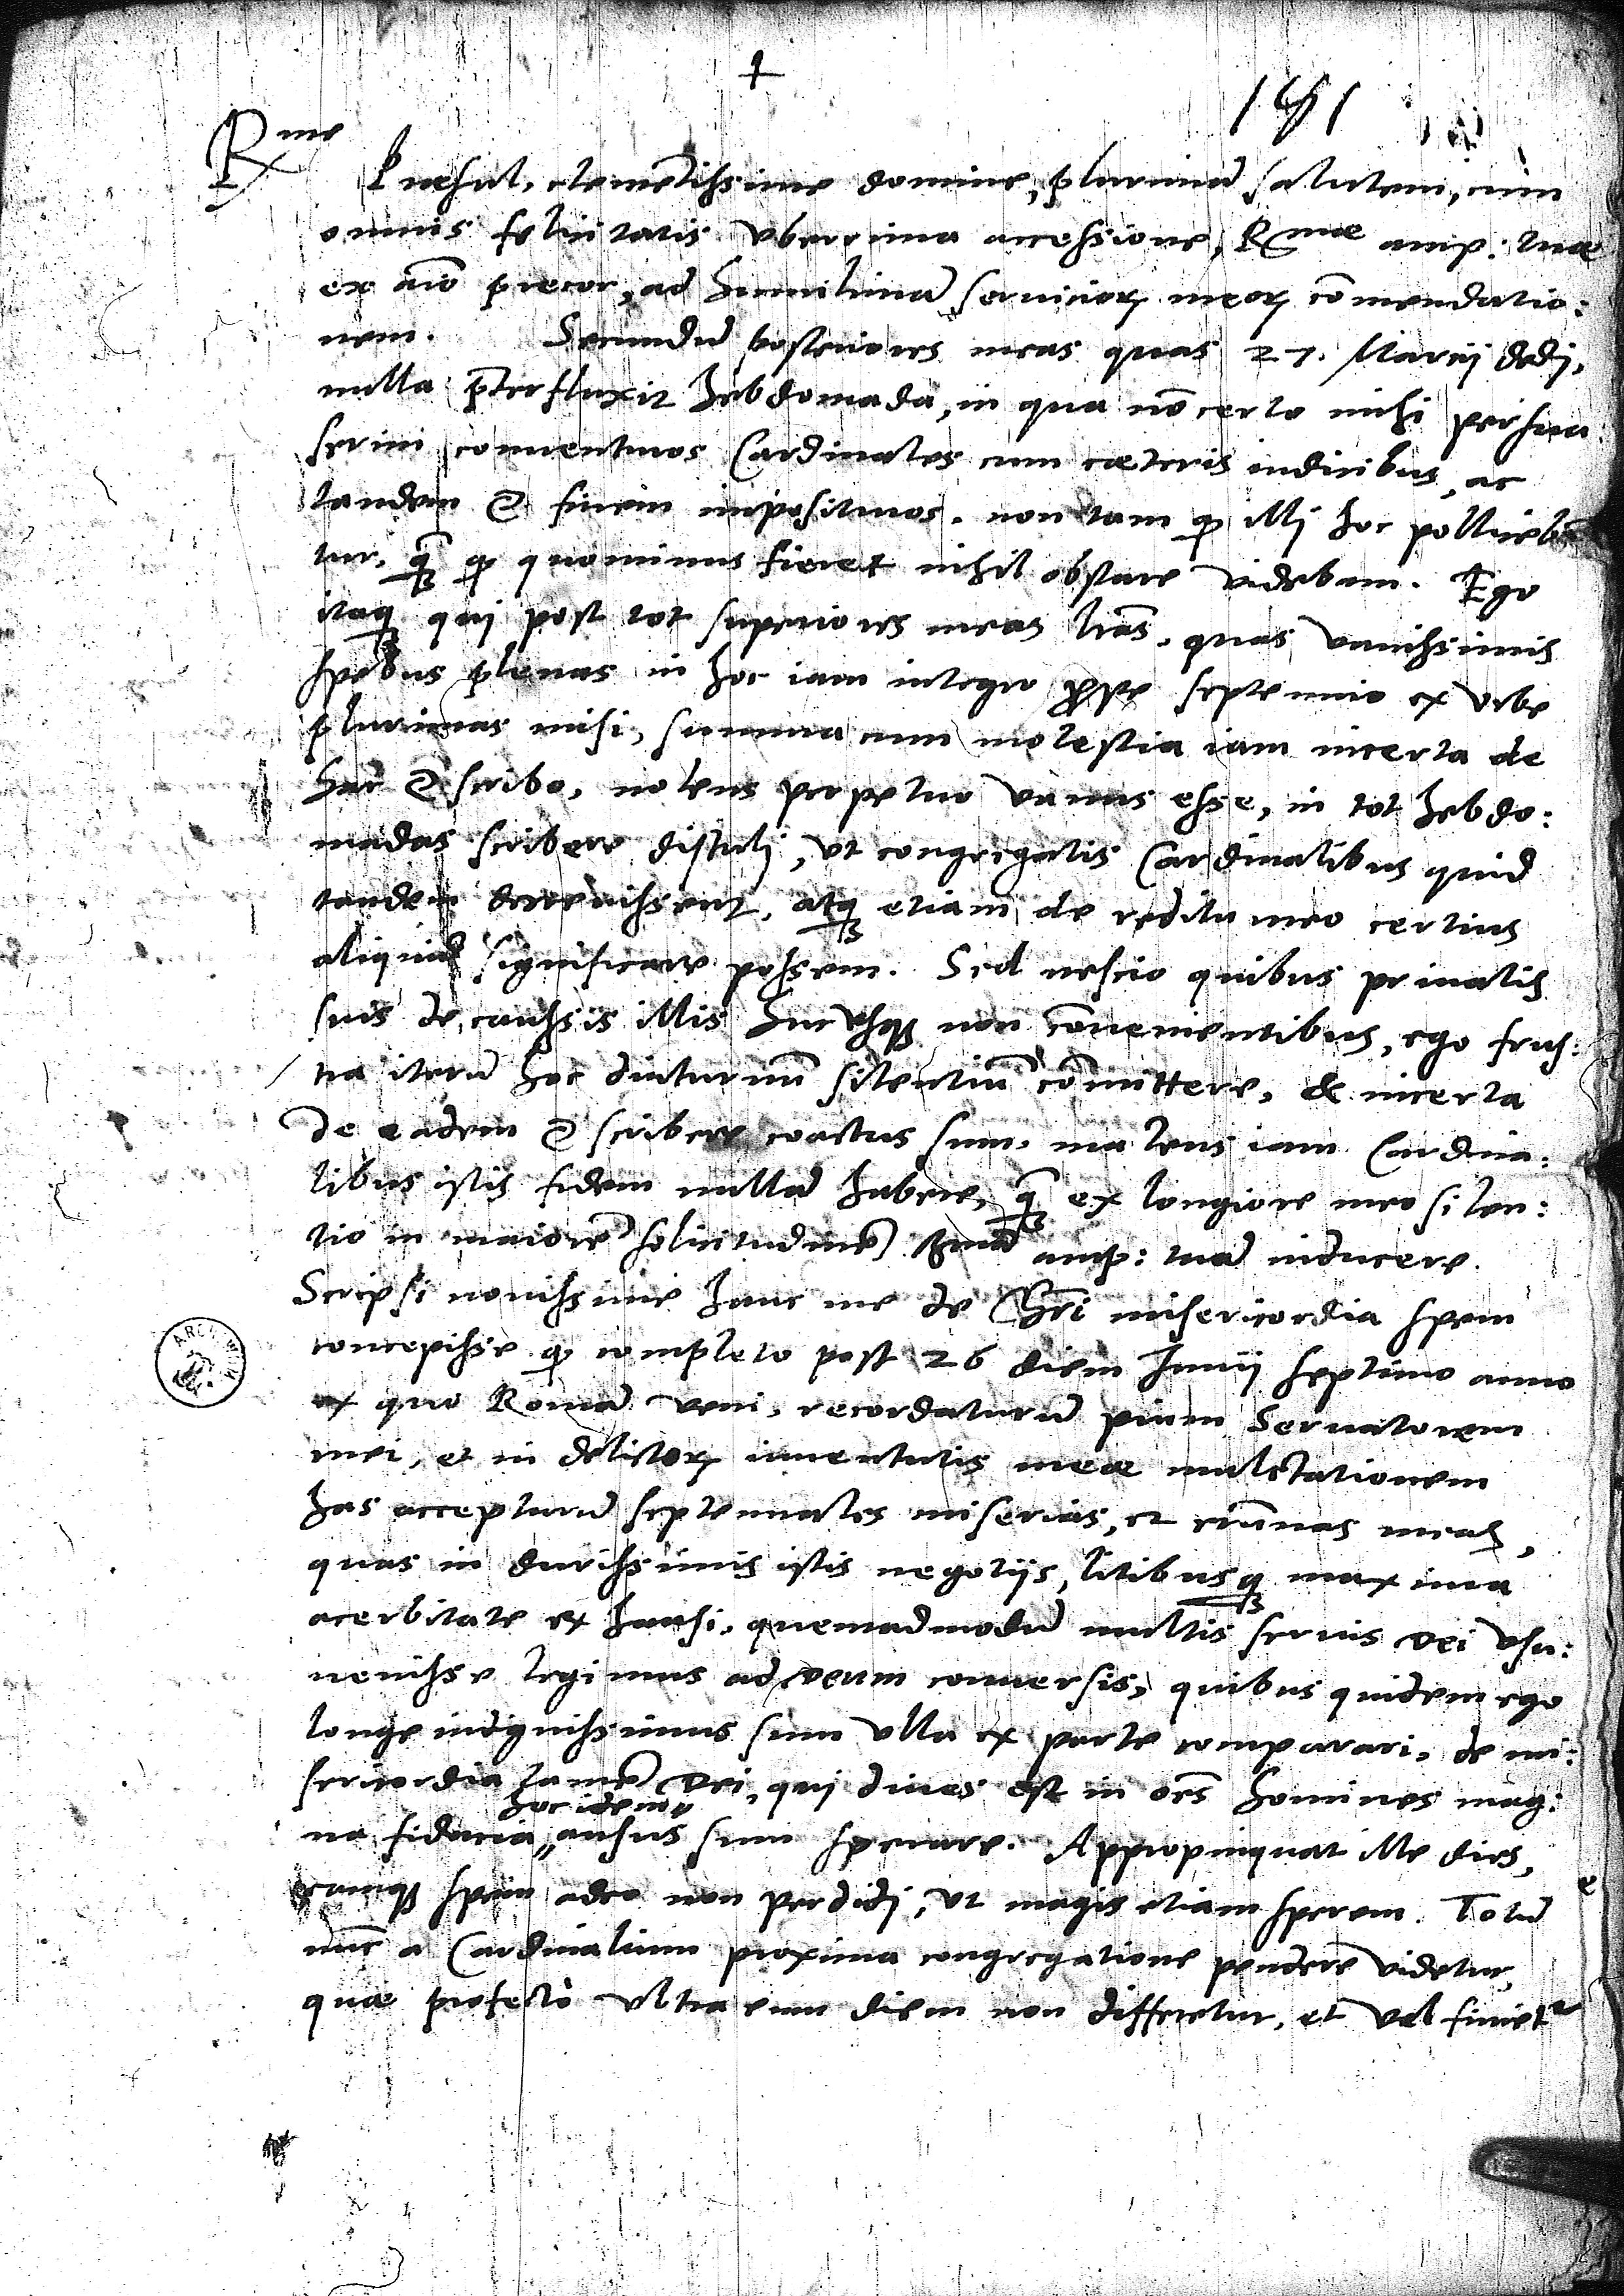 +
191
Rme Praesul, clemētissime domine, plurimā salutem, cum
omnis felicitatis uberrima accessione, Rmae amp: tuae
ex aīo precor, ad humilimā servicioꝝ meoꝝ cōmendatio:
nem. Secundū posteriores meas quas 27. Marcij dedj,
nulla p̄terfluxit hebdomada, in qua nō certo mihi persua
serim conventuros Cardinales cum caeteris iudicibus, ac
tandem finem imposituros. non tam ꝙ illj hoc pollicebā
tur, q̄ ꝙ quominus fieret nihil obstare videbam. Ego
itaq quj post tot superiores meas lrās, quas vanissimis
spebus plenas in hoc iam integro septennio ex Urbe
plurimas misi, summa cum molestia iam incerta de
hac scribo, nolens perpetuo vanus esse, in tot hebdo:
madas scribere distulj, ut congregatis Cardinalibus quid
tandem decrevissent, atq etiam de reditu meo certius
aliquid significare possem. Sed nescio quibus privatis
suis de caussis illis huc usqꝫ non cōvenientibus, ego frus:
tra iterū hoc diuturnū silentiū cōmittere, & incerta
de eadem scribere coactus sum. malens iam Cardina:
libus istis fidem nullā habere, q̄ ex longiore meo silen:
tio in maiorē solicitudinē Rmā amp: tuā inducere.
Scripsi novissime hanc me de misericordia spem
concepisse ꝙ completo post 26 diem Junij septimo anno
ex quo Romā veni, recordaturū pium Servatorem
mei, et in delictoꝝ iuventutis meae mulctationem
has accepturū septennales miserias, et erūnas meas,
quas in durissimis istis negotijs, litibusq maxima
acerbitate exhausi. quemadmodū multis servis Dei usu:
venisse legimus ad Deum conversis, quibus quidem ego
longe indignissimus sum ulla ex parte comparari. de mi:
sericordia tamē Dei, quj dives est in oēs homines mag:
hoc idem
na fiducia, ausus sum sperare. Appropinquat ille dies,
eamqꝫ spem adeo non perdidj, ut magis etiam sperem. Totū
nūc a Cardinalium proxima congregatione pendere videtur,
quae profecto ultra eum diem non differetur, et vel finiet